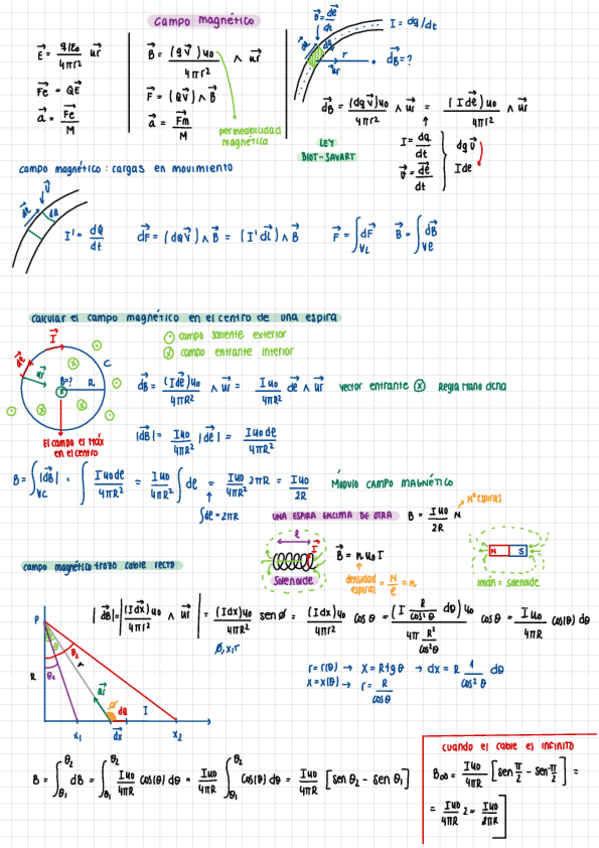 campo magnético
E⃗ = qε₀/4πr² u⃗r
F⃗e = QE⃗
a⃗ = F⃗e/M
B⃗ = (qv⃗)u₀/4πr² ∧ u⃗r
F⃗ = (Qv⃗) ∧ B⃗
a⃗ = F⃗m/M
permeabilidad
magnética
v⃗ = de⃗/dt
I = dq/dt
de⃗
r
u⃗r
dB⃗ = ?
dB⃗ = (dqv⃗)u₀/4πr² ∧ u⃗r = (Ide⃗)u₀/4πr² ∧ u⃗r
LEY
BIOT-SAVART
I = dq/dt
v⃗ = de⃗/dt
dqv⃗
Ide
campo magnético: cargas en movimiento
v⃗
de⃗
dQ
I' = dQ/dt
dF⃗ = (dQv⃗) ∧ B⃗ = (I'dl⃗) ∧ B⃗
F⃗ = ∫VL dF⃗
B⃗ = ∫Ve dB⃗
calcular el campo magnético en el centro de una espira
⊙ campo saliente exterior
⊗ campo entrante interior
I⃗
de⃗
u⃗r
C
B=?
R
El campo el máx
en el centro
dB⃗ = (Ide⃗)u₀/4πR² ∧ u⃗r = Iu₀/4πR² de⃗ ∧ u⃗r vector entrante ⊗ Regla mano dcha
|dB⃗| = Iu₀/4πR² |de⃗| = Iu₀de/4πR²
B = ∫VC |dB⃗| = ∫ Iu₀de/4πR² = Iu₀/4πR² ∫ de = Iu₀/4πR² 2πR = Iu₀/2R MÓDULO CAMPO MAGNÉTICO
∫de = 2πR
UNA ESPIRA ENCIMA DE OTRA B = Iu₀/2R N
Nº espiras
ℓ
I
Solenoide
B⃗ = n u₀ I
densidad
espiras
= N/ℓ = n
N S
imán = solenoide
campo magnético trozo cable recto
|dB⃗| = |(Idx⃗)u₀/4πr² ∧ u⃗r| = (Idx)u₀/4πR² sen ø = (Idx)u₀/4πr² cos θ = (I R/cos²θ dθ)u₀/4π R²/cos²θ cos θ = Iu₀/4πR cos(θ) dθ
ø, x, r
r = r(θ) → x = Rtgθ → dx = R 1/cos²θ dθ
x = x(θ) → r = R/cosθ
P
θ
θ₂
θ₁
R
r
u⃗r
ø
dq
I
x₁
dx⃗
x₂
B = ∫θ₁^θ₂ dB = ∫θ₁^θ₂ Iu₀/4πR cos(θ) dθ = Iu₀/4πR ∫θ₁^θ₂ cos(θ) dθ = Iu₀/4πR [sen θ₂ - sen θ₁]
cuando el cable es infinito
B∞ = Iu₀/4πR [sen π/2 - sen -π/2] =
= Iu₀/4πR 2 = Iu₀/2πR]